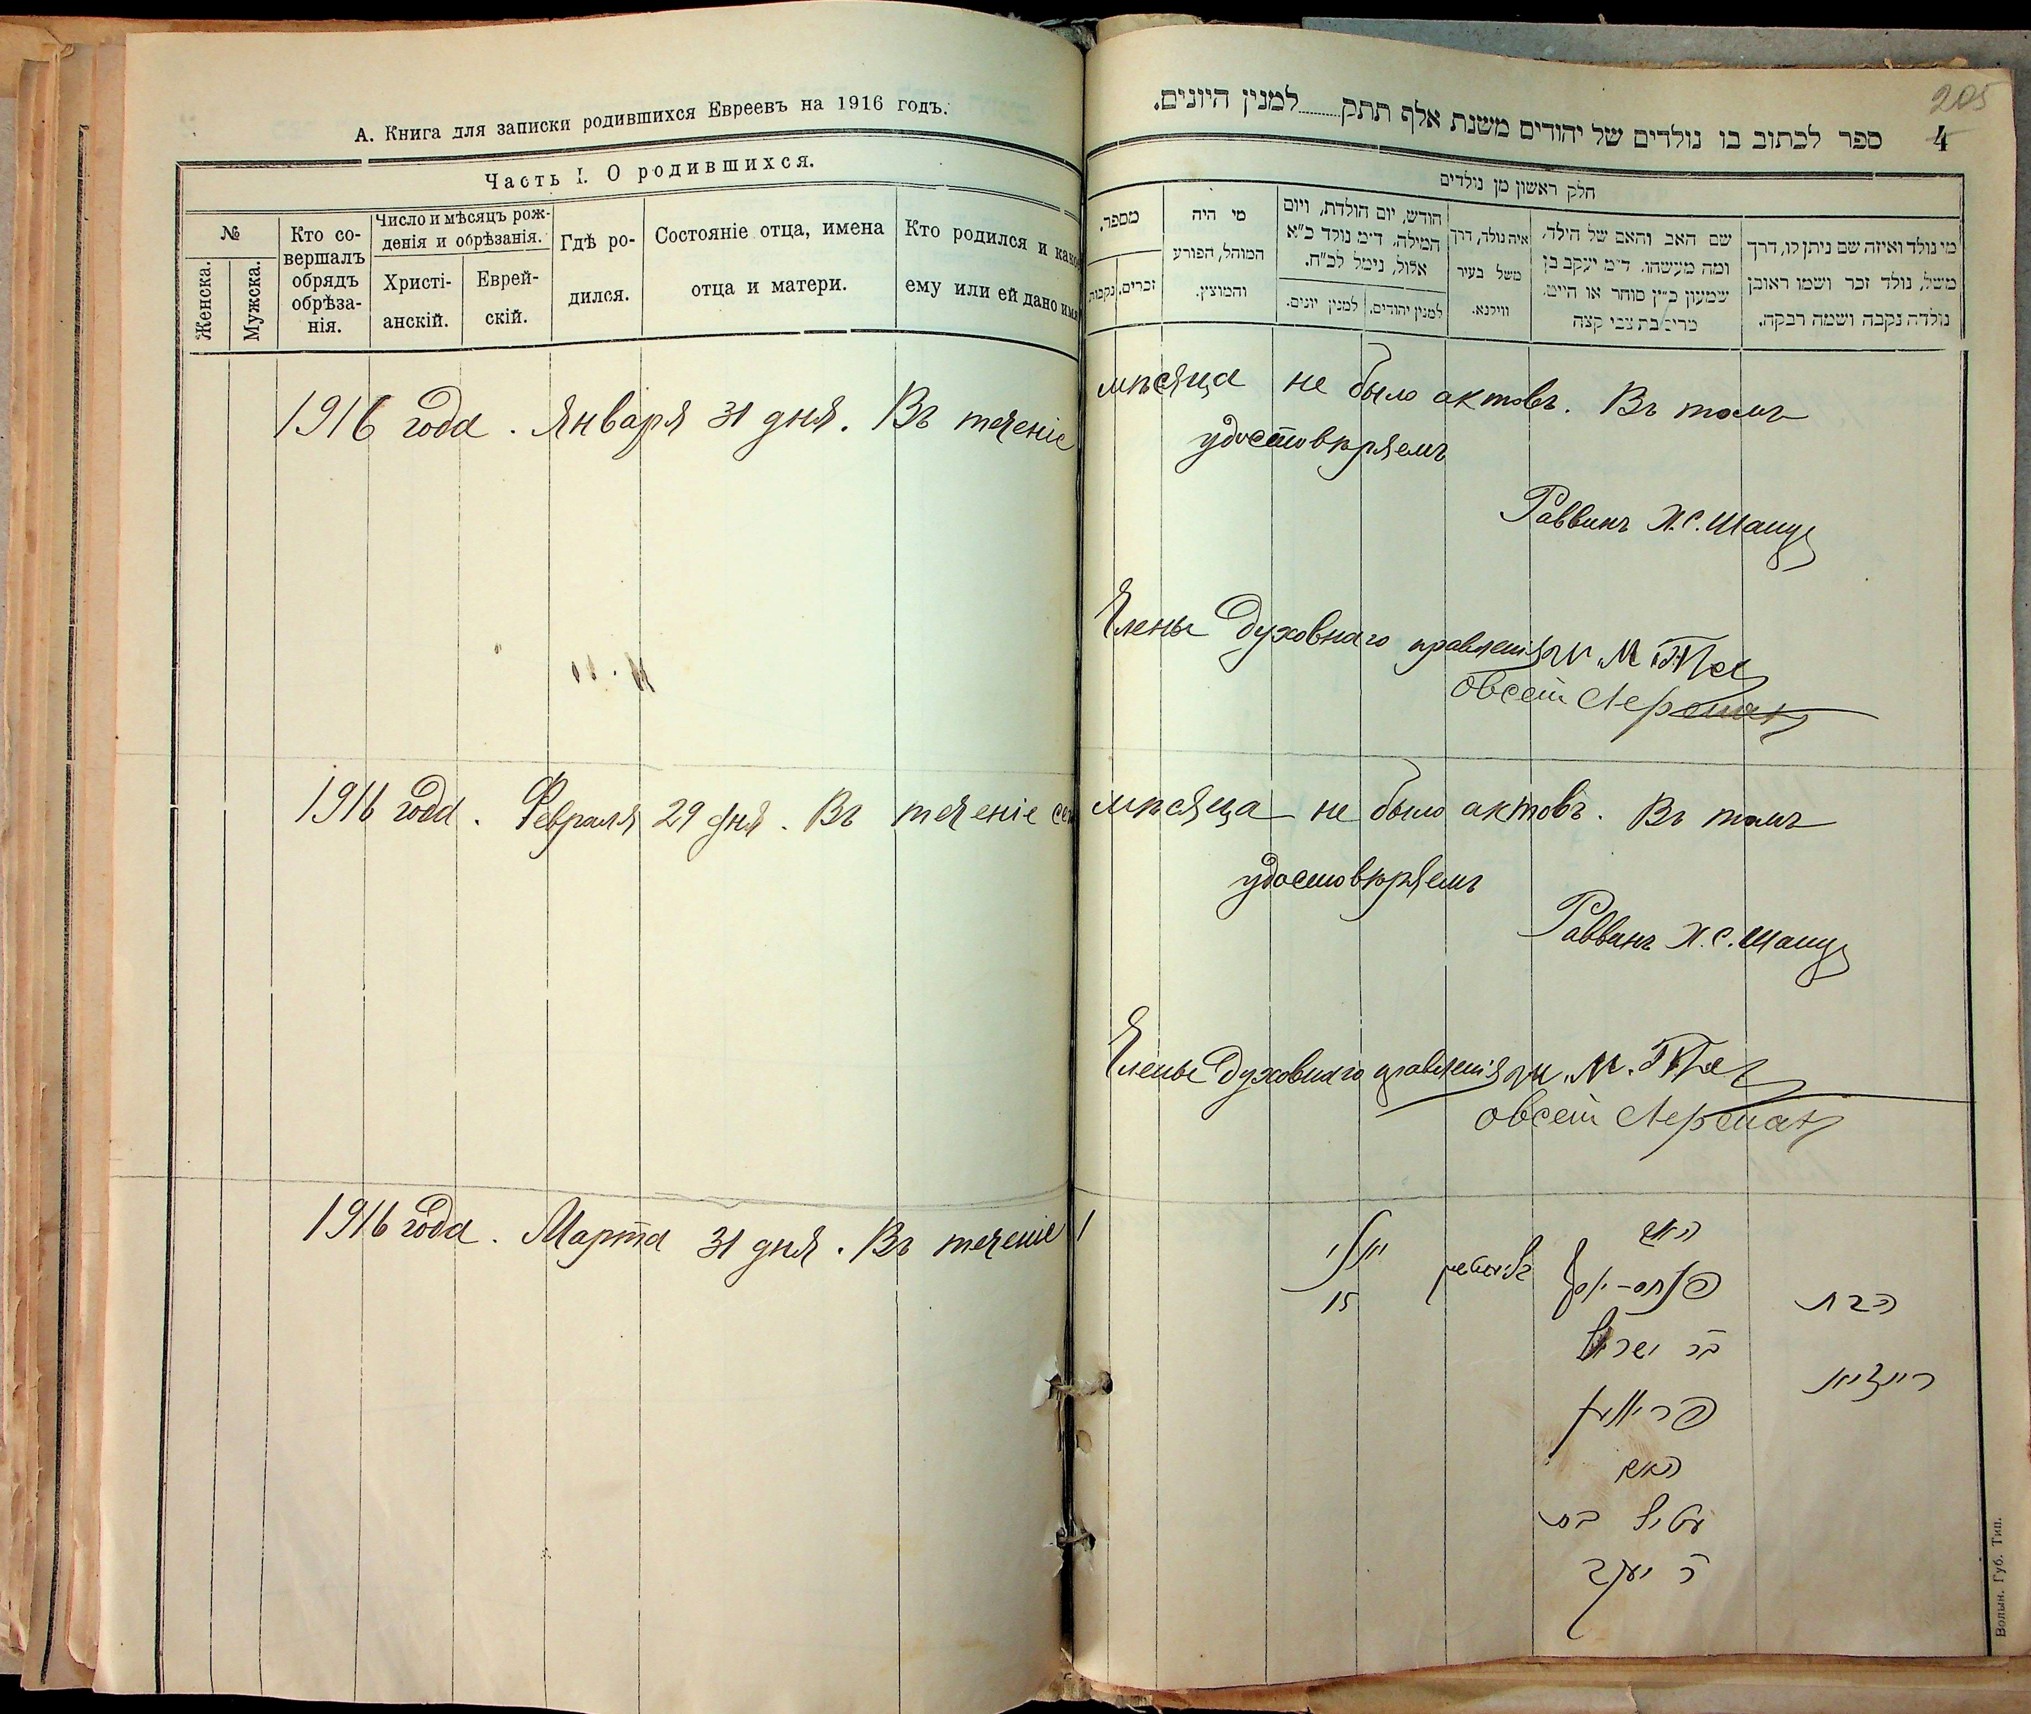 А. Книга для записки родившихся Евреевъ на 1916 годъ.
Часть I. О родившихся.
№
Женска.
Мужска.
Кто со-
вершалъ
обрядъ
обрѣза-
нія.
Число и мѣсяцъ рож-
денія и обрѣзанія.
Христі-
анскій.
Еврей-
скій.
Гдѣ ро-
дился.
Состояніе отца, имена
отца и матери.
Кто родился и како
ему или ей дано имя
1916 года. Января 31 дня. Въ теченіе
1916 года. Февраля 29 дня. Въ теченіе
1916 года. Марта 31 дня. Въ теченіе
205
4
ספר לכתוב בו נולדים של יהודים משנת אלף תתק........למנין היונים.
חלק ראשון מן נולדים
מי נולד ואיזה שם ניתן לו, דרך
משל, נולד זכר ושמו ראובן
נולדה נקבה ושמה רבקה.
שם האב והאם של הילד,
ומה מעשהו. ד״מ יעקב בן
שמעון כ״ץ סוחר או חייט,
מרים בת צבי קצה
איה נולד, דרך
משל בעיר
ווילנא.
חודש, יום הולדת, ויום
המילה. ד״מ נולד כ״א
אלול, נימל לכ״ח.
למנין יהודים.
למנין יונים.
מי היה
המוהל, הפורע
והמוצץ.
מספר.
זכרים.
נקבות
мѣсяца не было актовъ. Въ томъ
удостовѣряемъ
Раввинъ
Члены Духовнаго правленія
Овсей Лерман
мѣсяца не было актовъ. Въ томъ
удостовѣряемъ
Раввинъ
Члены Духовнаго правленія
Овсей Лерман
1
15
האב
בר ישראל
האם
בת
ר יעקב
הבת
Волын. Губ. Тип.